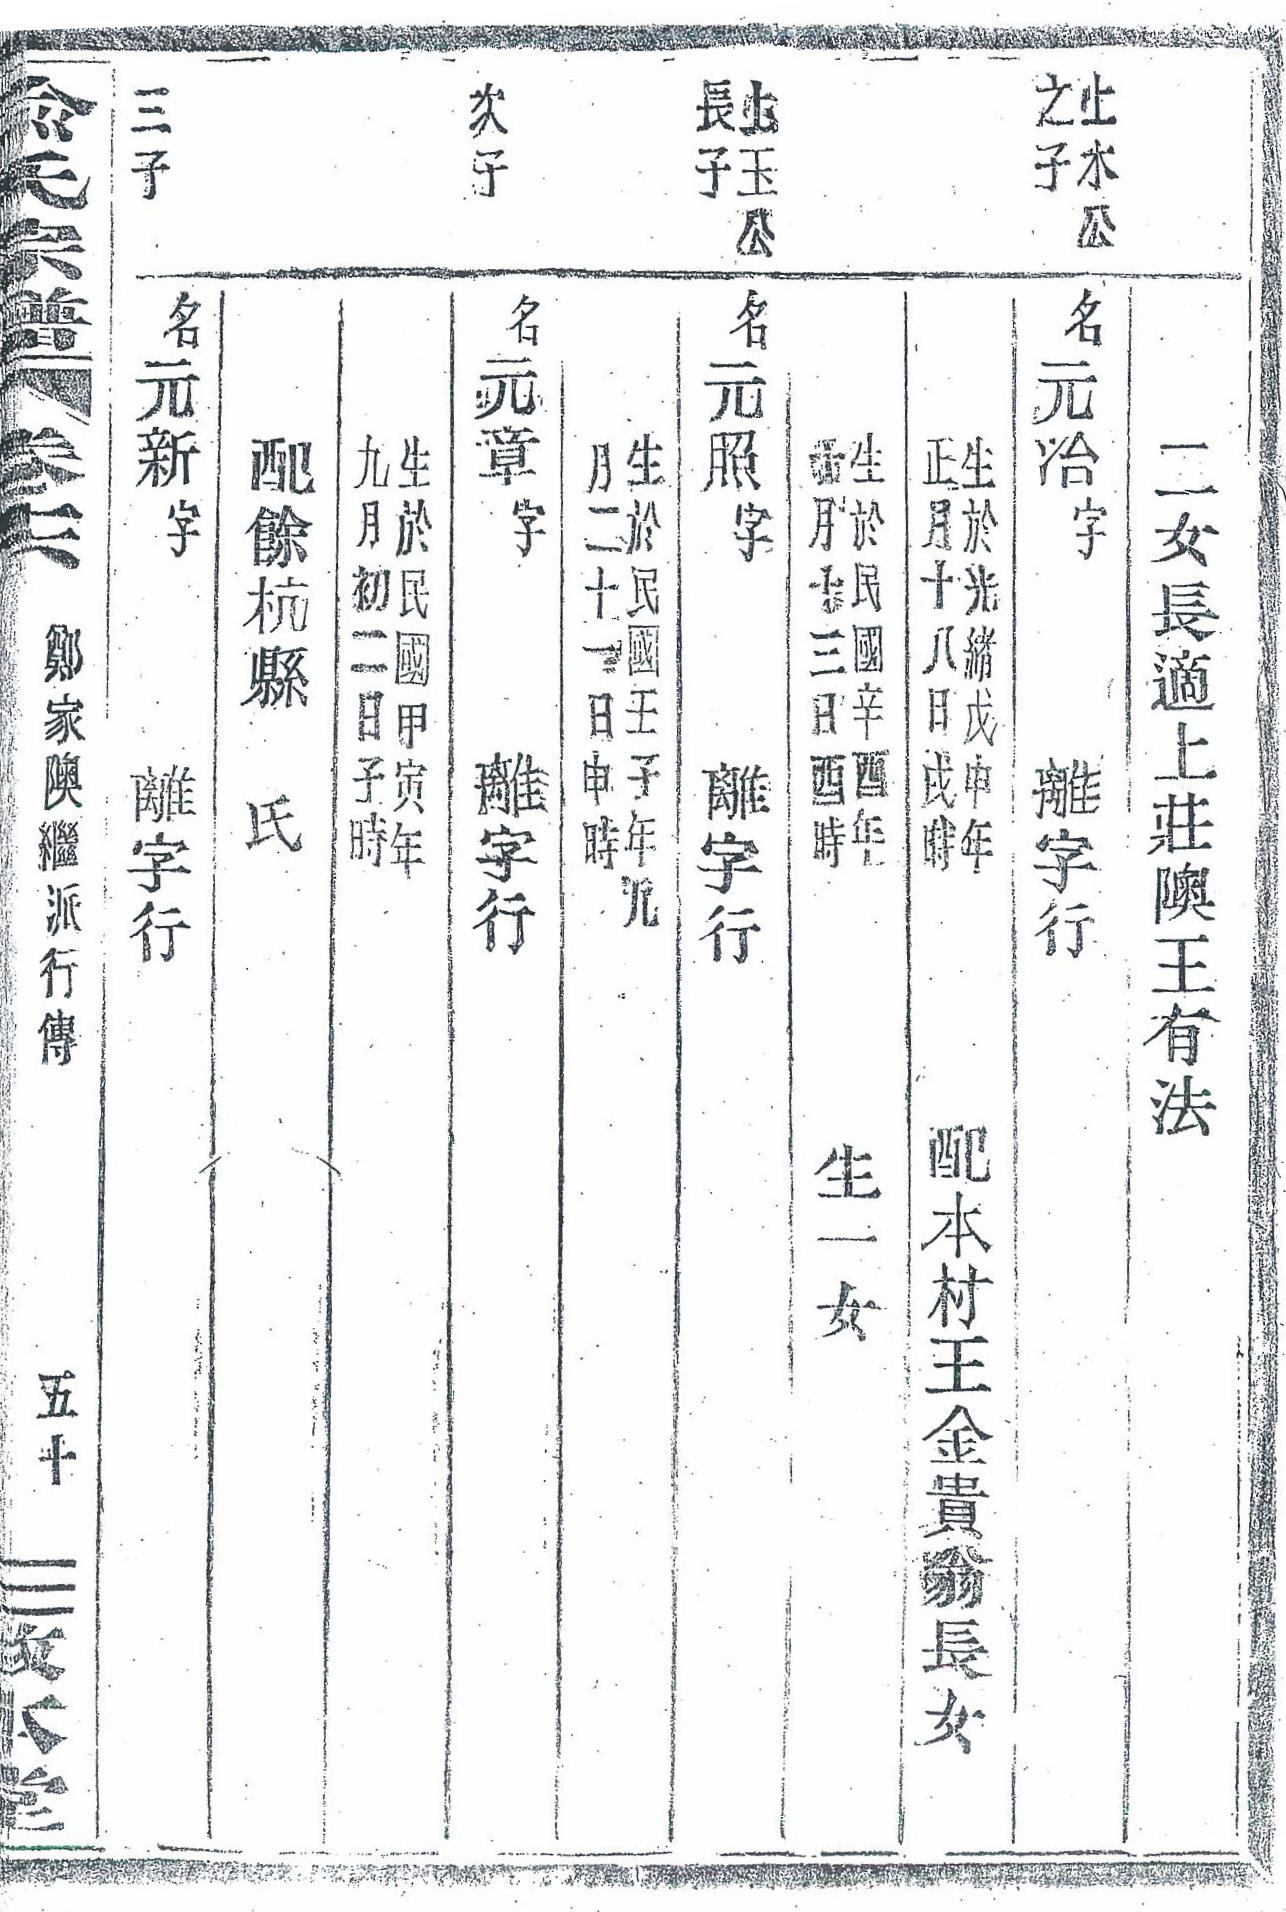 二女長適上莊隩王有法
止水公
之子
名元冶字 離字行
生於光緒戊申年
正月十八日戌時
配本村王金貴翁長女
生於民國辛酉年
月十三日酉時
生一女
止玉公
長子
名元照字 離字行
生於民國壬子年九
月二十一日申時
次子
名元章字 離字行
生於民國甲寅年
九月初二日子時
配餘杭縣 氏
三子
名元新字 離字行
氏宗譜 卷三 鄭家隩繼派行傳 五十 敘本堂